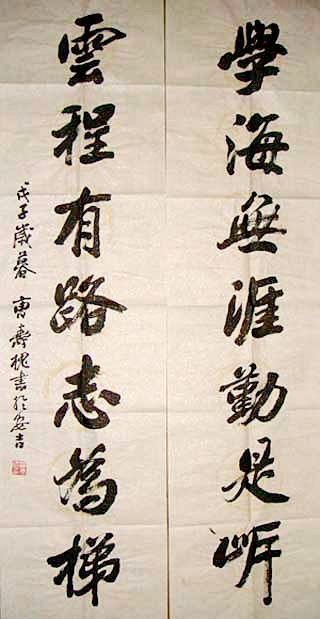 學海無涯勤是岸
雲程有路志為梯
戊子歲暮 曹壽槐書於安吉